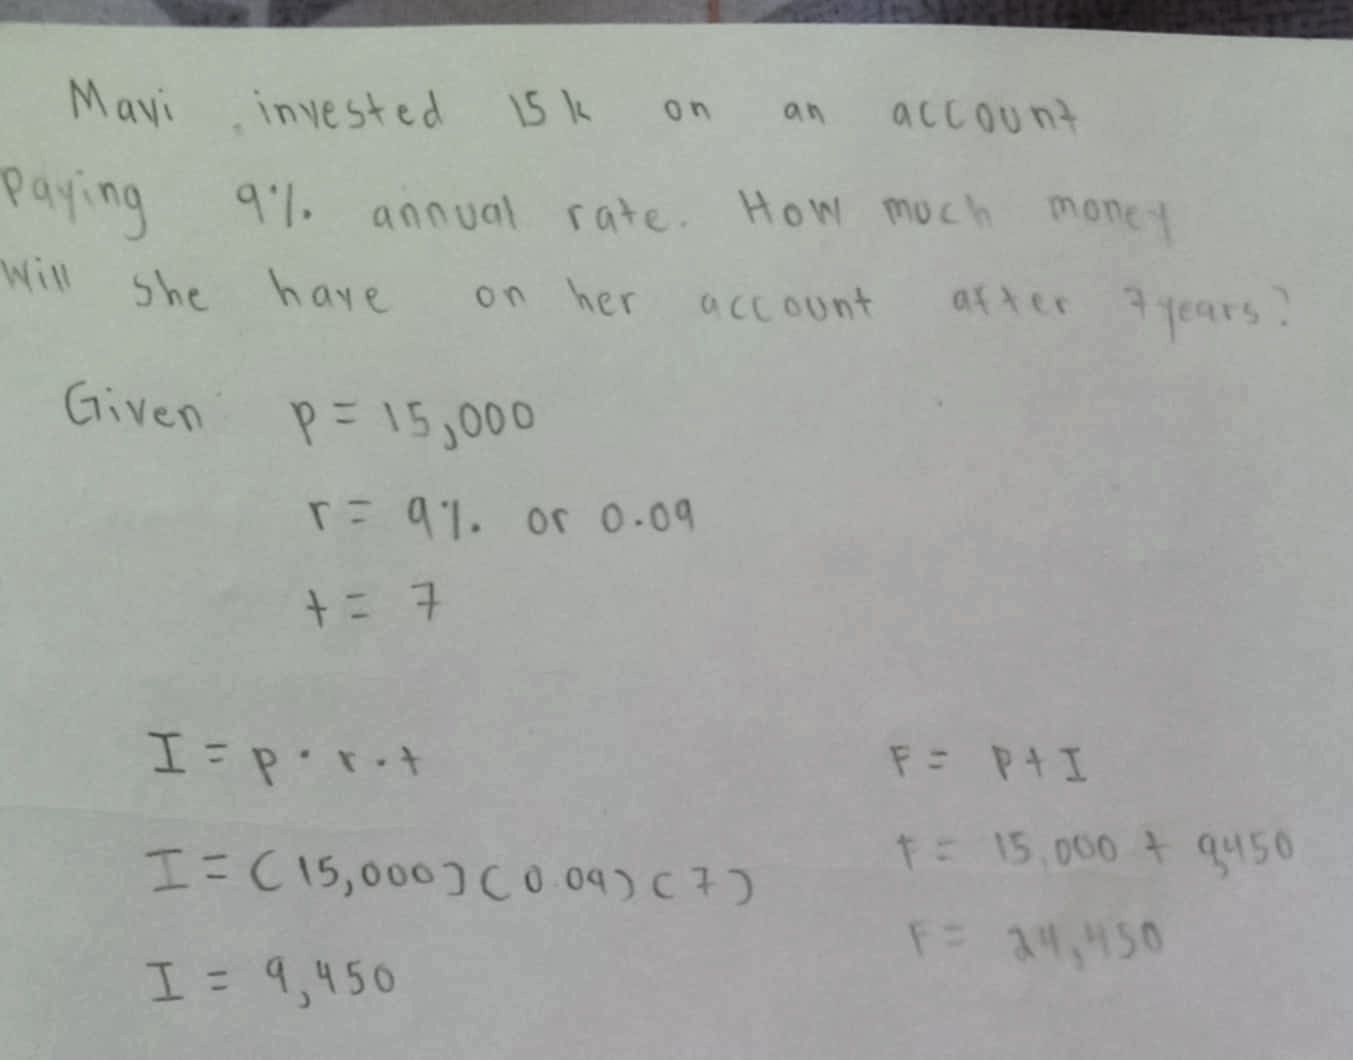 Mavi invested 15k on an account
Paying 9% annual rate. How much money
Will she have on her account after 7 years?
Given p = 15,000
r = 9% or 0.09
t = 7
I = p · r · t
I = (15,000)(0.09)(7)
I = 9,450
F = P + I
F = 15,000 + 9,450
F = 24,450